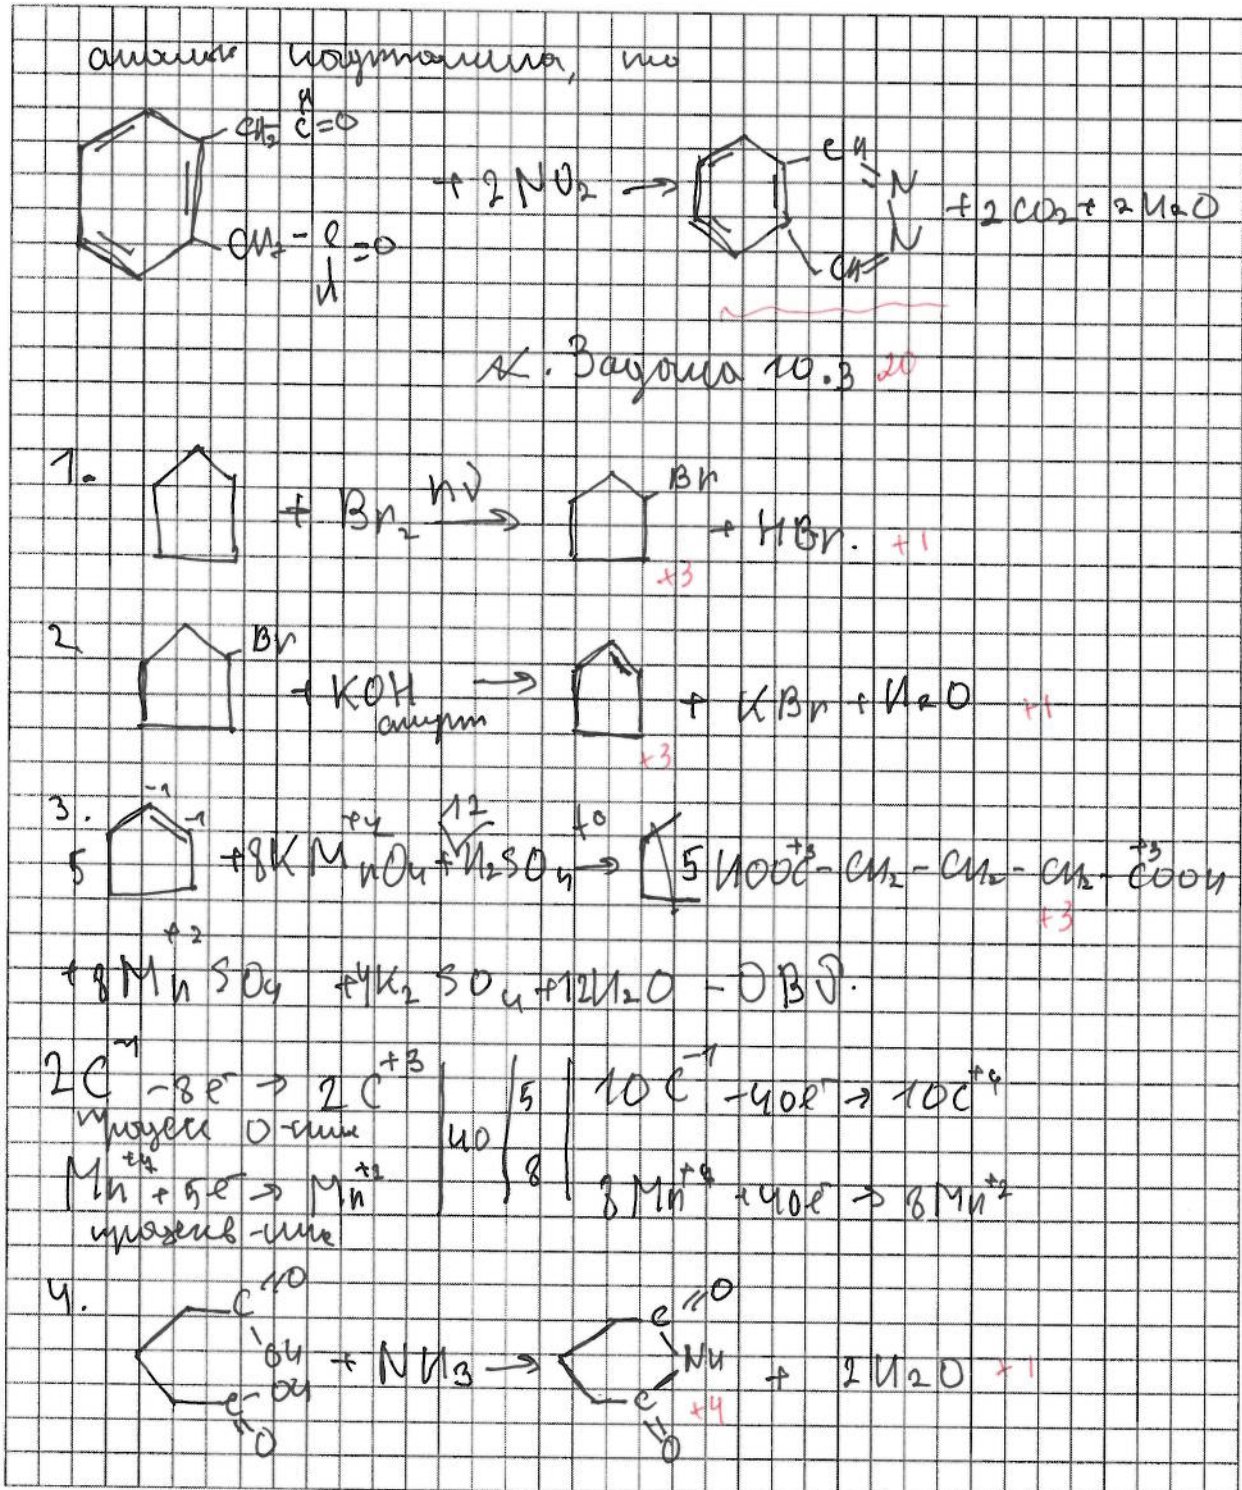 аналог нафталина, то
CH₂ – C(H)=O
+ 2NO₂ → CH=N–N=CH + 2CO₂ + 2H₂O
CH₂ – C(H)=O
Задача 10.3 20
1. + Br₂ hν → Br + HBr. +1
+3
2 Br + KOH спирт → + KBr + H₂O +1
+3
3. 5 -1 -1 + 8KMn⁺⁷O₄ + 12 H₂SO₄ t° → 5 HOOC⁺³ – CH₂ – CH₂ – CH₂ – C⁺³OOH
+3
+ 8Mn⁺²SO₄ + 4K₂SO₄ + 12H₂O – ОВР.
2C⁻¹ – 8e⁻ → 2C⁺³ | 40 | 5 | 10C⁻¹ – 40e⁻ → 10C⁺⁴
процесс о-ния
Mn⁺⁷ + 5e⁻ → Mn⁺² | 8 | 8Mn⁺⁷ + 40e⁻ → 8Mn⁺²
процесс в-ния
4. C=O OH C–OH =O + NH₃ → C=O NH C=O + 2H₂O +1
+4